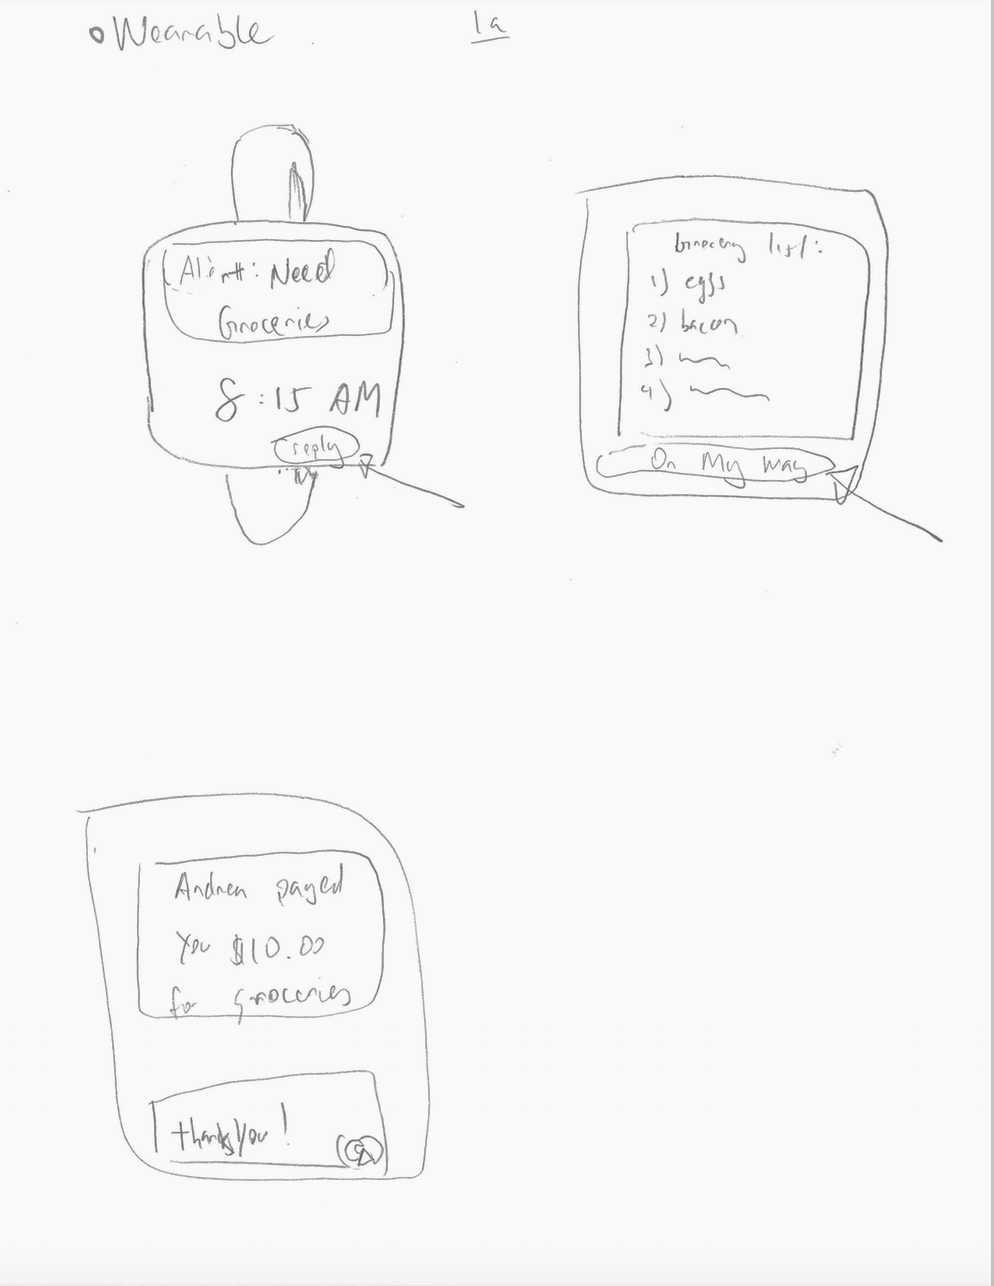 Wearable
1a
Alert: Need
Groceries
8:15 AM
reply
Grocery list:
1) eggs
2) bacon
3)
4)
On My Way
Andrew payed
You $10.00
for groceries
thank you!